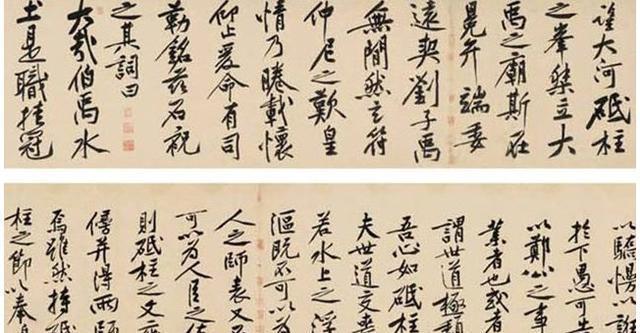 望大河砥柱
之峯桀立大
禹之廟斯在
冕弁端委
遠契劉子禹
無間然玄符
仲尼之歎皇
情乃睠載懷
仰止爰命有司
勒銘茲石祝
之其詞曰
大哉伯禹水
土是職挂冠
以驕慢以
於下愚可
以鄭公之事
業者也或者
謂世道極頹
吾心如砥柱
夫世道交喪
若水上之浮
漚既不可以為
人之師表又不
可以為人臣之佐
則砥柱之文座
傍并得兩師
焉雖然持砥
柱之節以奉身